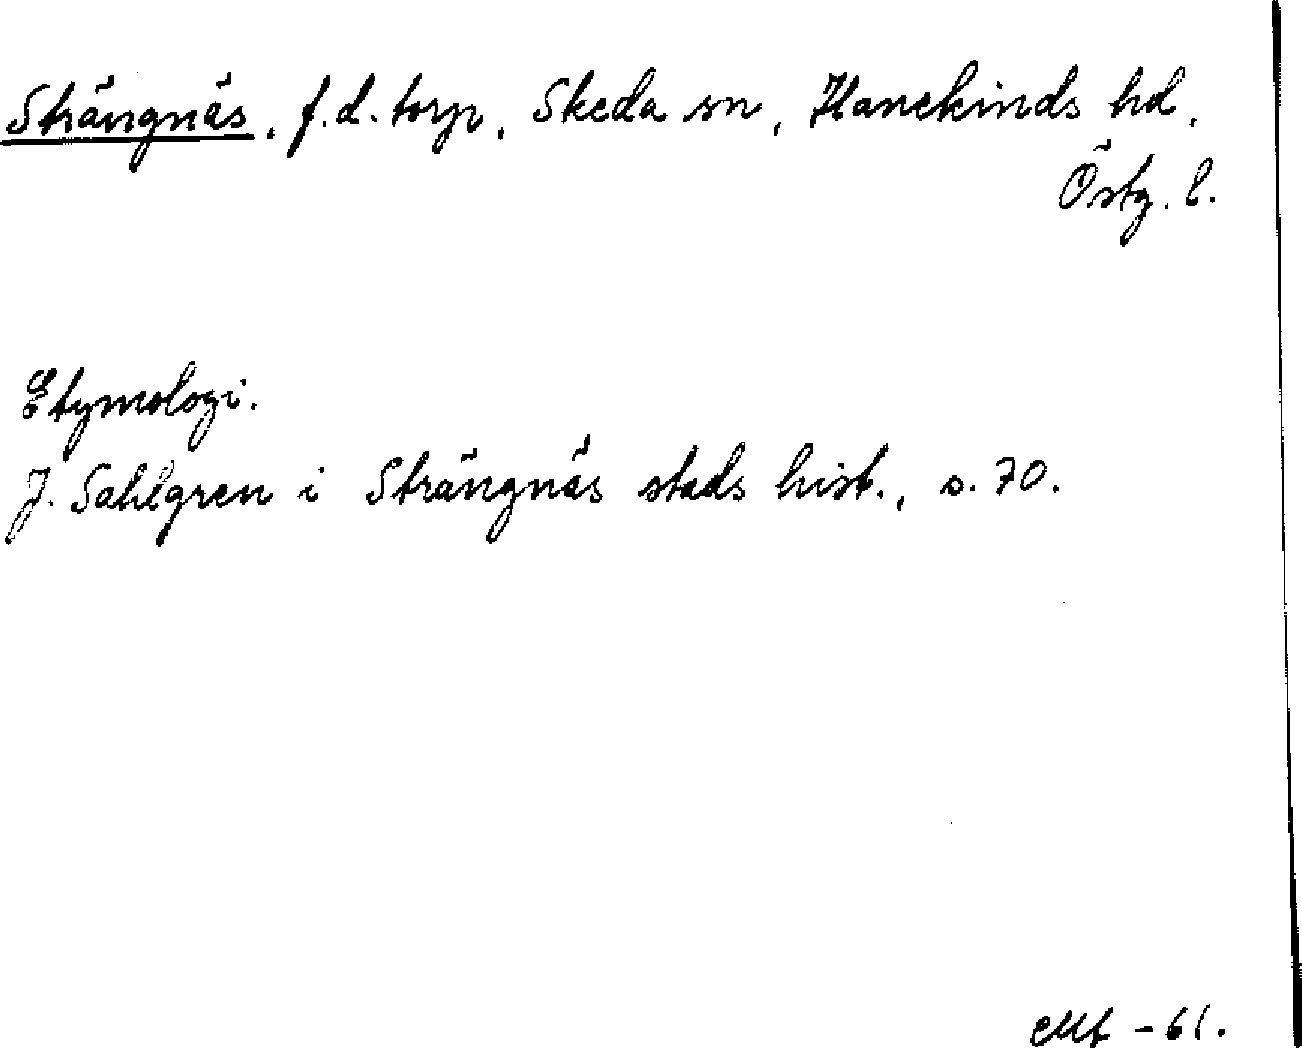 Strängnäs, f.d. torp, Skeda sn, Hanekinds hd,
Östg. l.
Etymologi.
J. Sahlgren i Strängnäs stads hist., s. 70.
-61.